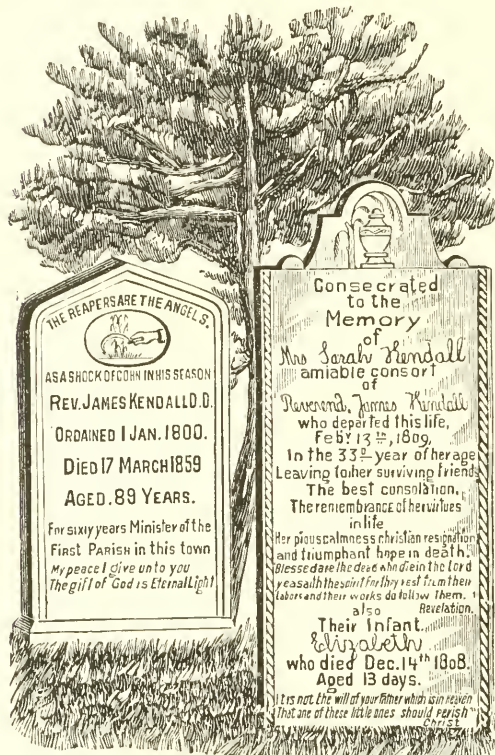 THE REAPERS ARE THE ANGELS.
AS A SHOCK OF CORN IN HIS SEASON
REV. JAMES KENDALL D.D.
ORDAINED 1 JAN. 1800.
DIED 17 MARCH 1859
AGED. 89 YEARS.
For sixty years Minister of the
FIRST PARISH in this town
My peace I give unto you
The gift of God is Eternal Light
Consecrated
to the
Memory
of
Mrs Sarah Kendall
amiable consort
of
Reverend, James Kendall
who departed this life,
Feby 13th, 1809,
In the 33d year of her age
Leaving to her surviving friends
The best consolation,
The remembrance of her virtues
in life
Her pious calmness christian resignation
and triumphant hope in death.
Blessed are the dead who die in the Lord
yea saith the spirit for they rest from their
labors and their works do follow them.
Revelation.
also
Their Infant.
Elizabeth
who died Dec. 14th 1808.
Aged 13 days.
It is not the will of your Father which is in heaven
That one of these little ones should perish
Christ